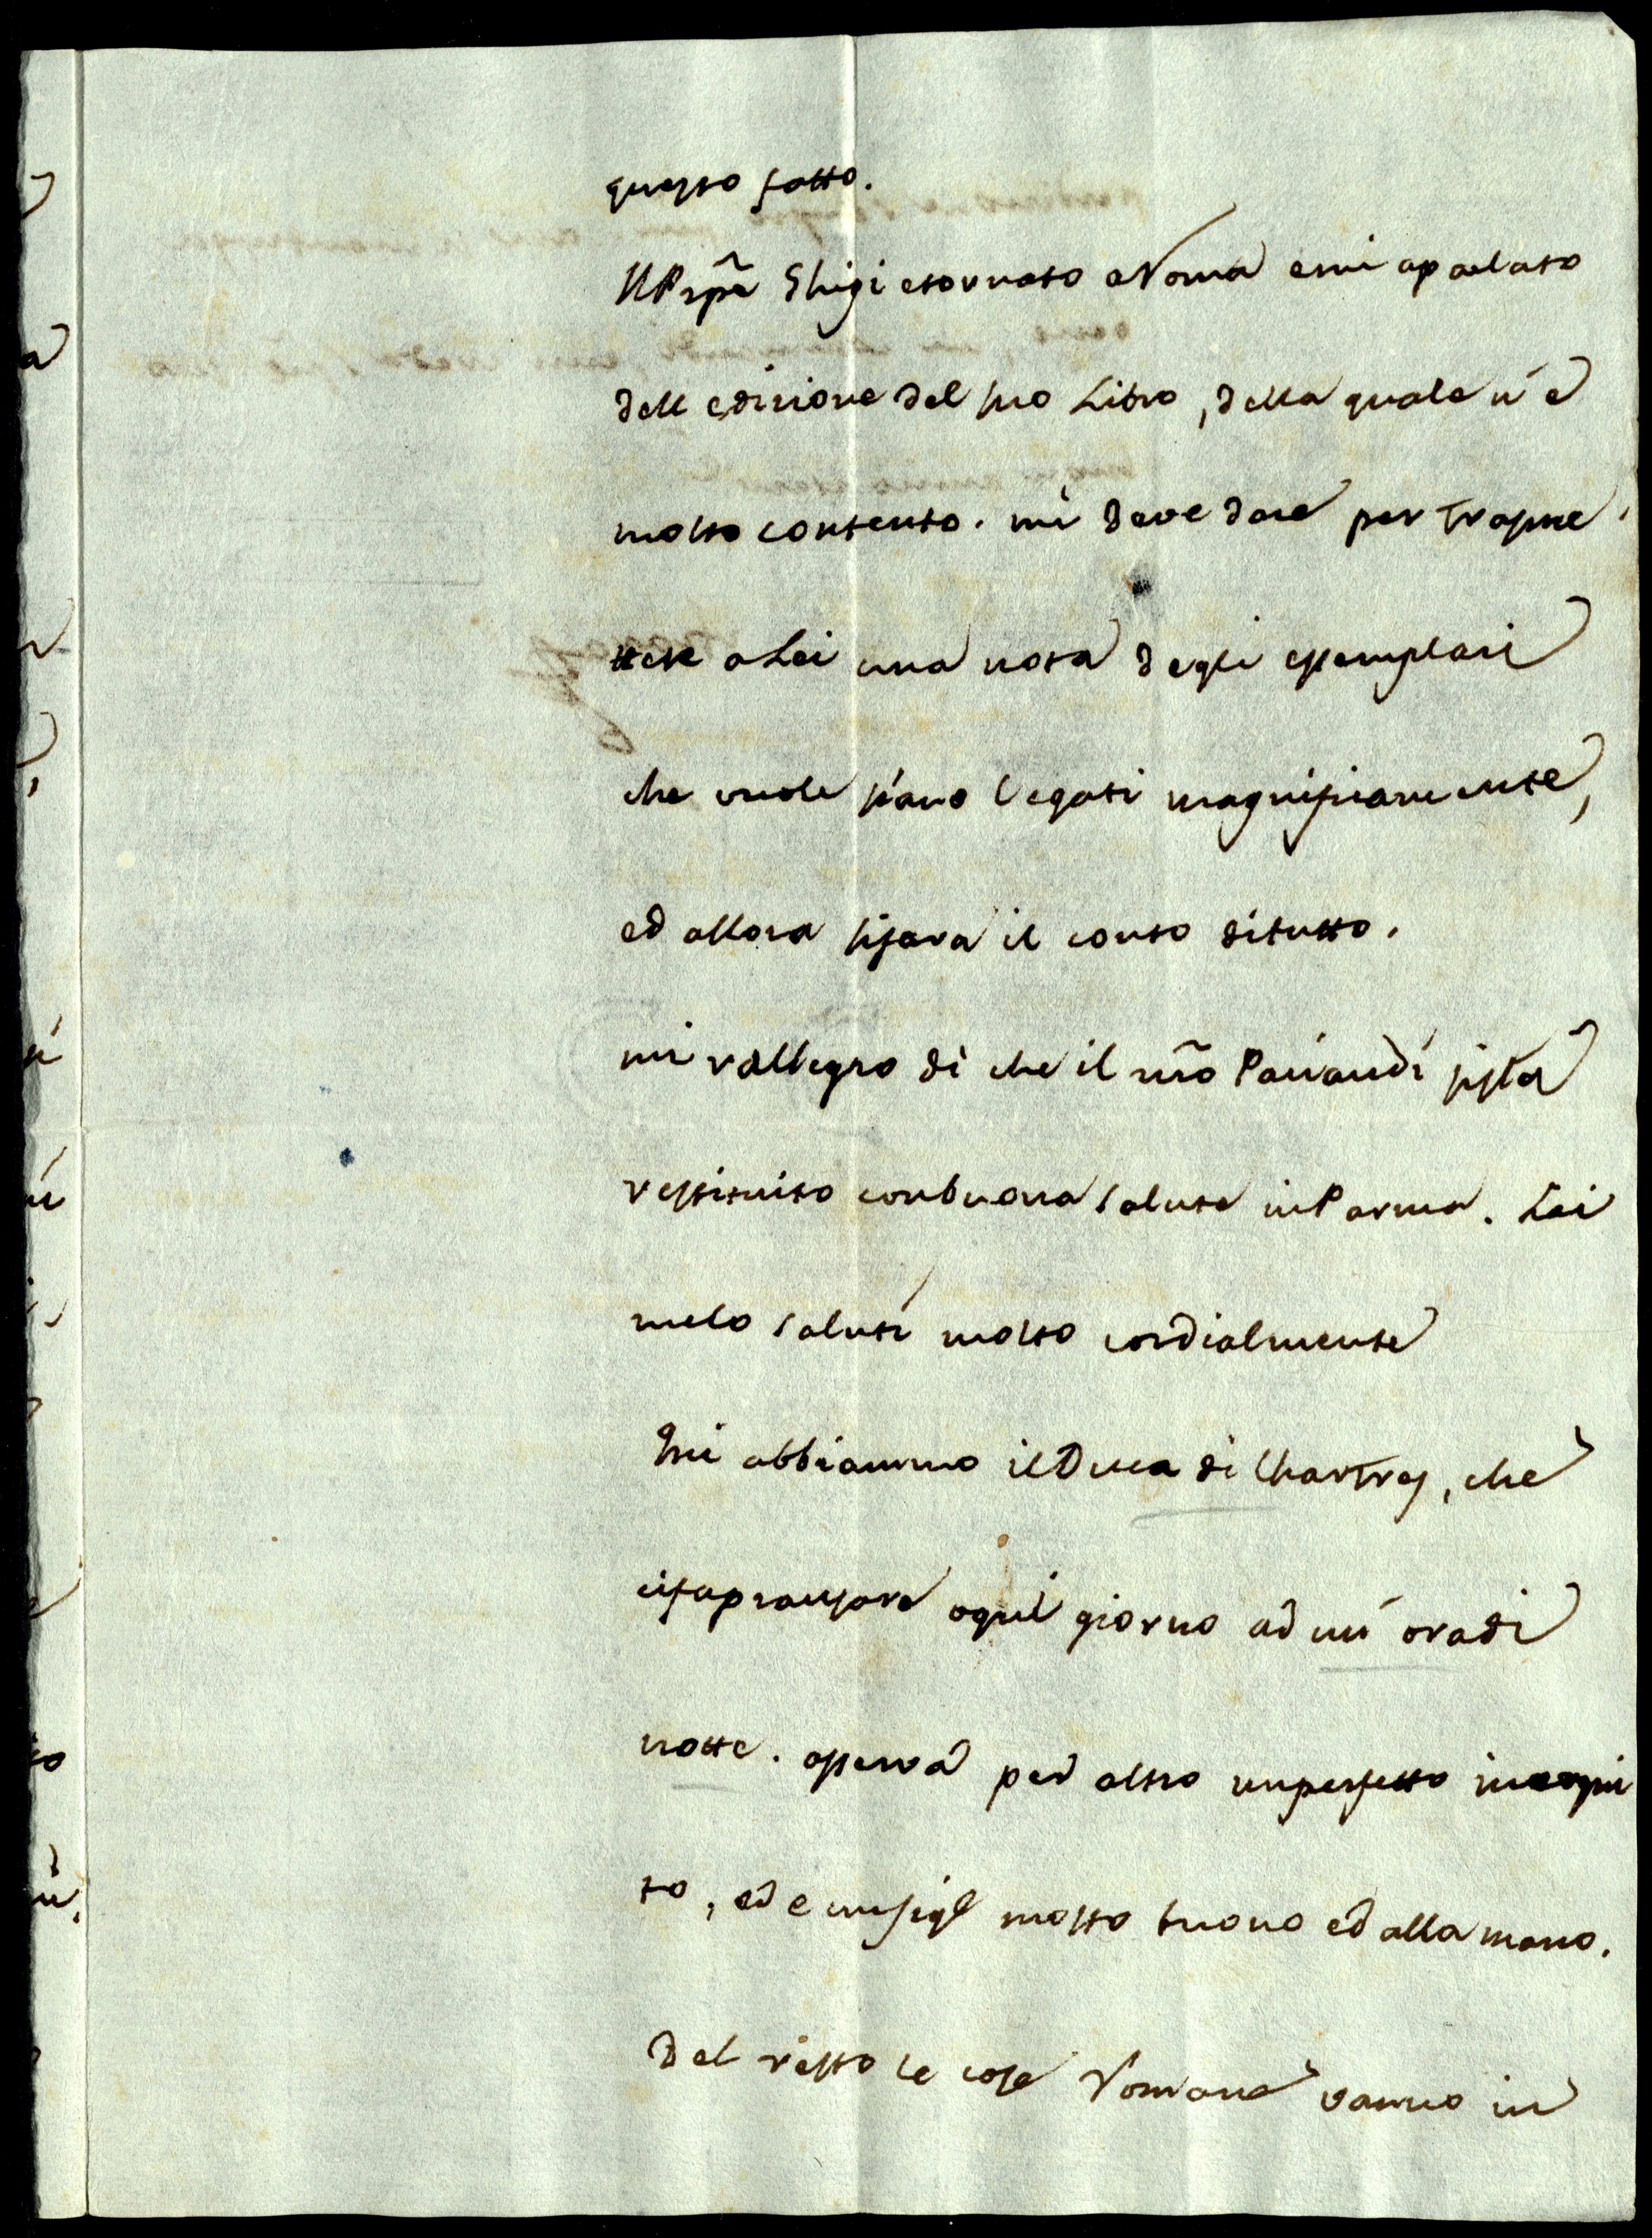 questo fatto.
Il Prpe Ghigi etornato a Roma emi aparlato
dell edizione del suo Libro, della quale n'è
molto contento. mi deve dare per trasme
ttere a Lei una nota degli essemplari
che vuole siano legati magnificamente,
ed allora sifara il conto ditutto.
mi rallegro di che il nro Paciaudi sista
restituito conbuona salute in Parma. Lei
melo saluti molto cordialmente
Qui abbiammo il Duca di Chartres, che
cifapransare ogni giorno ad un' oradi
notte. osserva per altro unperfetto incogni
to, ed e unsigr molto buono ed alla mano.
Del resto le cose Romane vanno in